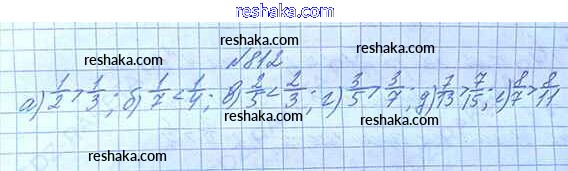 reshaka.com
reshaka.com reshaka.com
№812
reshaka.com
а) 1/2 > 1/3; б) 1/7 < 1/4; в) 2/5 < 2/3; г) 3/5 > 3/7; д) 7/13 > 7/15; е) 8/7 > 8/11
reshaka.com reshaka.com
reshaka.com